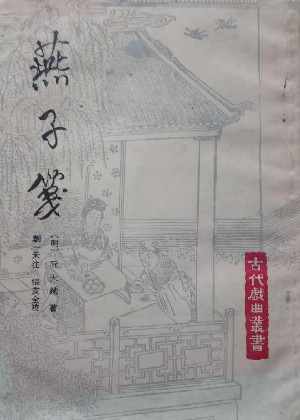 燕子箋
〔明〕阮大鋮 著
劉一禾注 張安全校
古代戲曲叢書